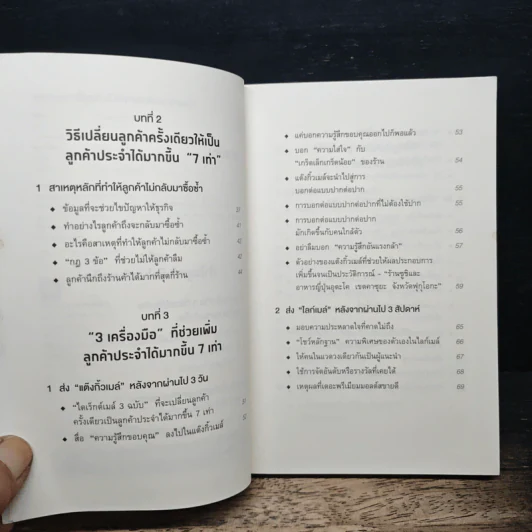 บทที่ 2
วิธีเปลี่ยนลูกค้าครั้งเดียวให้เป็น
ลูกค้าประจำได้มากขึ้น "7 เท่า"
1 สาเหตุหลักที่ทำให้ลูกค้าไม่กลับมาซื้อซ้ำ
◆ ข้อมูลที่จะช่วยไขปัญหาให้ธุรกิจ
◆ ทำอย่างไรลูกค้าถึงจะกลับมาซื้อซ้ำ 41
◆ อะไรคือสาเหตุที่ทำให้ลูกค้าไม่กลับมาซื้อซ้ำ
◆ "กฎ 3 ข้อ" ที่ช่วยไม่ให้ลูกค้าลืม
◆ ลูกค้านึกถึงร้านค้าได้มากที่สุดกี่ร้าน
บทที่ 3
"3 เครื่องมือ" ที่ช่วยเพิ่ม
ลูกค้าประจำได้มากขึ้น 7 เท่า
1 ส่ง "แต๊งกิ้วเมล์" หลังจากผ่านไป 3 วัน
◆ "ไดเร็กต์เมล์ 3 ฉบับ" ที่จะเปลี่ยนลูกค้า
ครั้งเดียวเป็นลูกค้าประจำได้มากขึ้น 7 เท่า
◆ สื่อ "ความรู้สึกขอบคุณ" ลงไปในแต๊งกิ้วเมล์
◆ แค่บอกความรู้สึกขอบคุณออกไปก็พอแล้ว 53
◆ บอก "ความใส่ใจ" กับ
"เกร็ดเล็กเกร็ดน้อย" ของร้าน 54
◆ แต๊งกิ้วเมล์จะนำไปสู่การ
บอกต่อแบบปากต่อปาก 55
◆ การบอกต่อแบบปากต่อปากที่ไม่ต้องใช้ปาก 56
◆ การบอกต่อแบบปากต่อปาก
มักเกิดขึ้นกับคนใกล้ตัว 56
◆ อย่าลืมบอก "ความรู้สึกอันแรงกล้า" 57
◆ ตัวอย่างของแต๊งกิ้วเมล์ที่ช่วยให้ผลประกอบการ
เพิ่มขึ้นจนเป็นประวัติการณ์ - "ร้านซูชิและ
อาหารญี่ปุ่นอุตะโค เขตคาซุยะ จังหวัดฟุกุโอกะ" 59
2 ส่ง "ไลก์เมล์" หลังจากผ่านไป 3 สัปดาห์
◆ มอบความประหลาดใจที่คาดไม่ถึง 65
◆ "โชว์หลักฐาน" ความพิเศษของตัวเองในไลก์เมล์ 66
◆ ให้คนในแวดวงเดียวกันเป็นผู้แนะนำ 68
◆ ใช้การจัดอันดับหรือรางวัลที่เคยได้ 68
◆ เหตุผลที่เดอะพรีเมียมมอลต์สขายดี 69